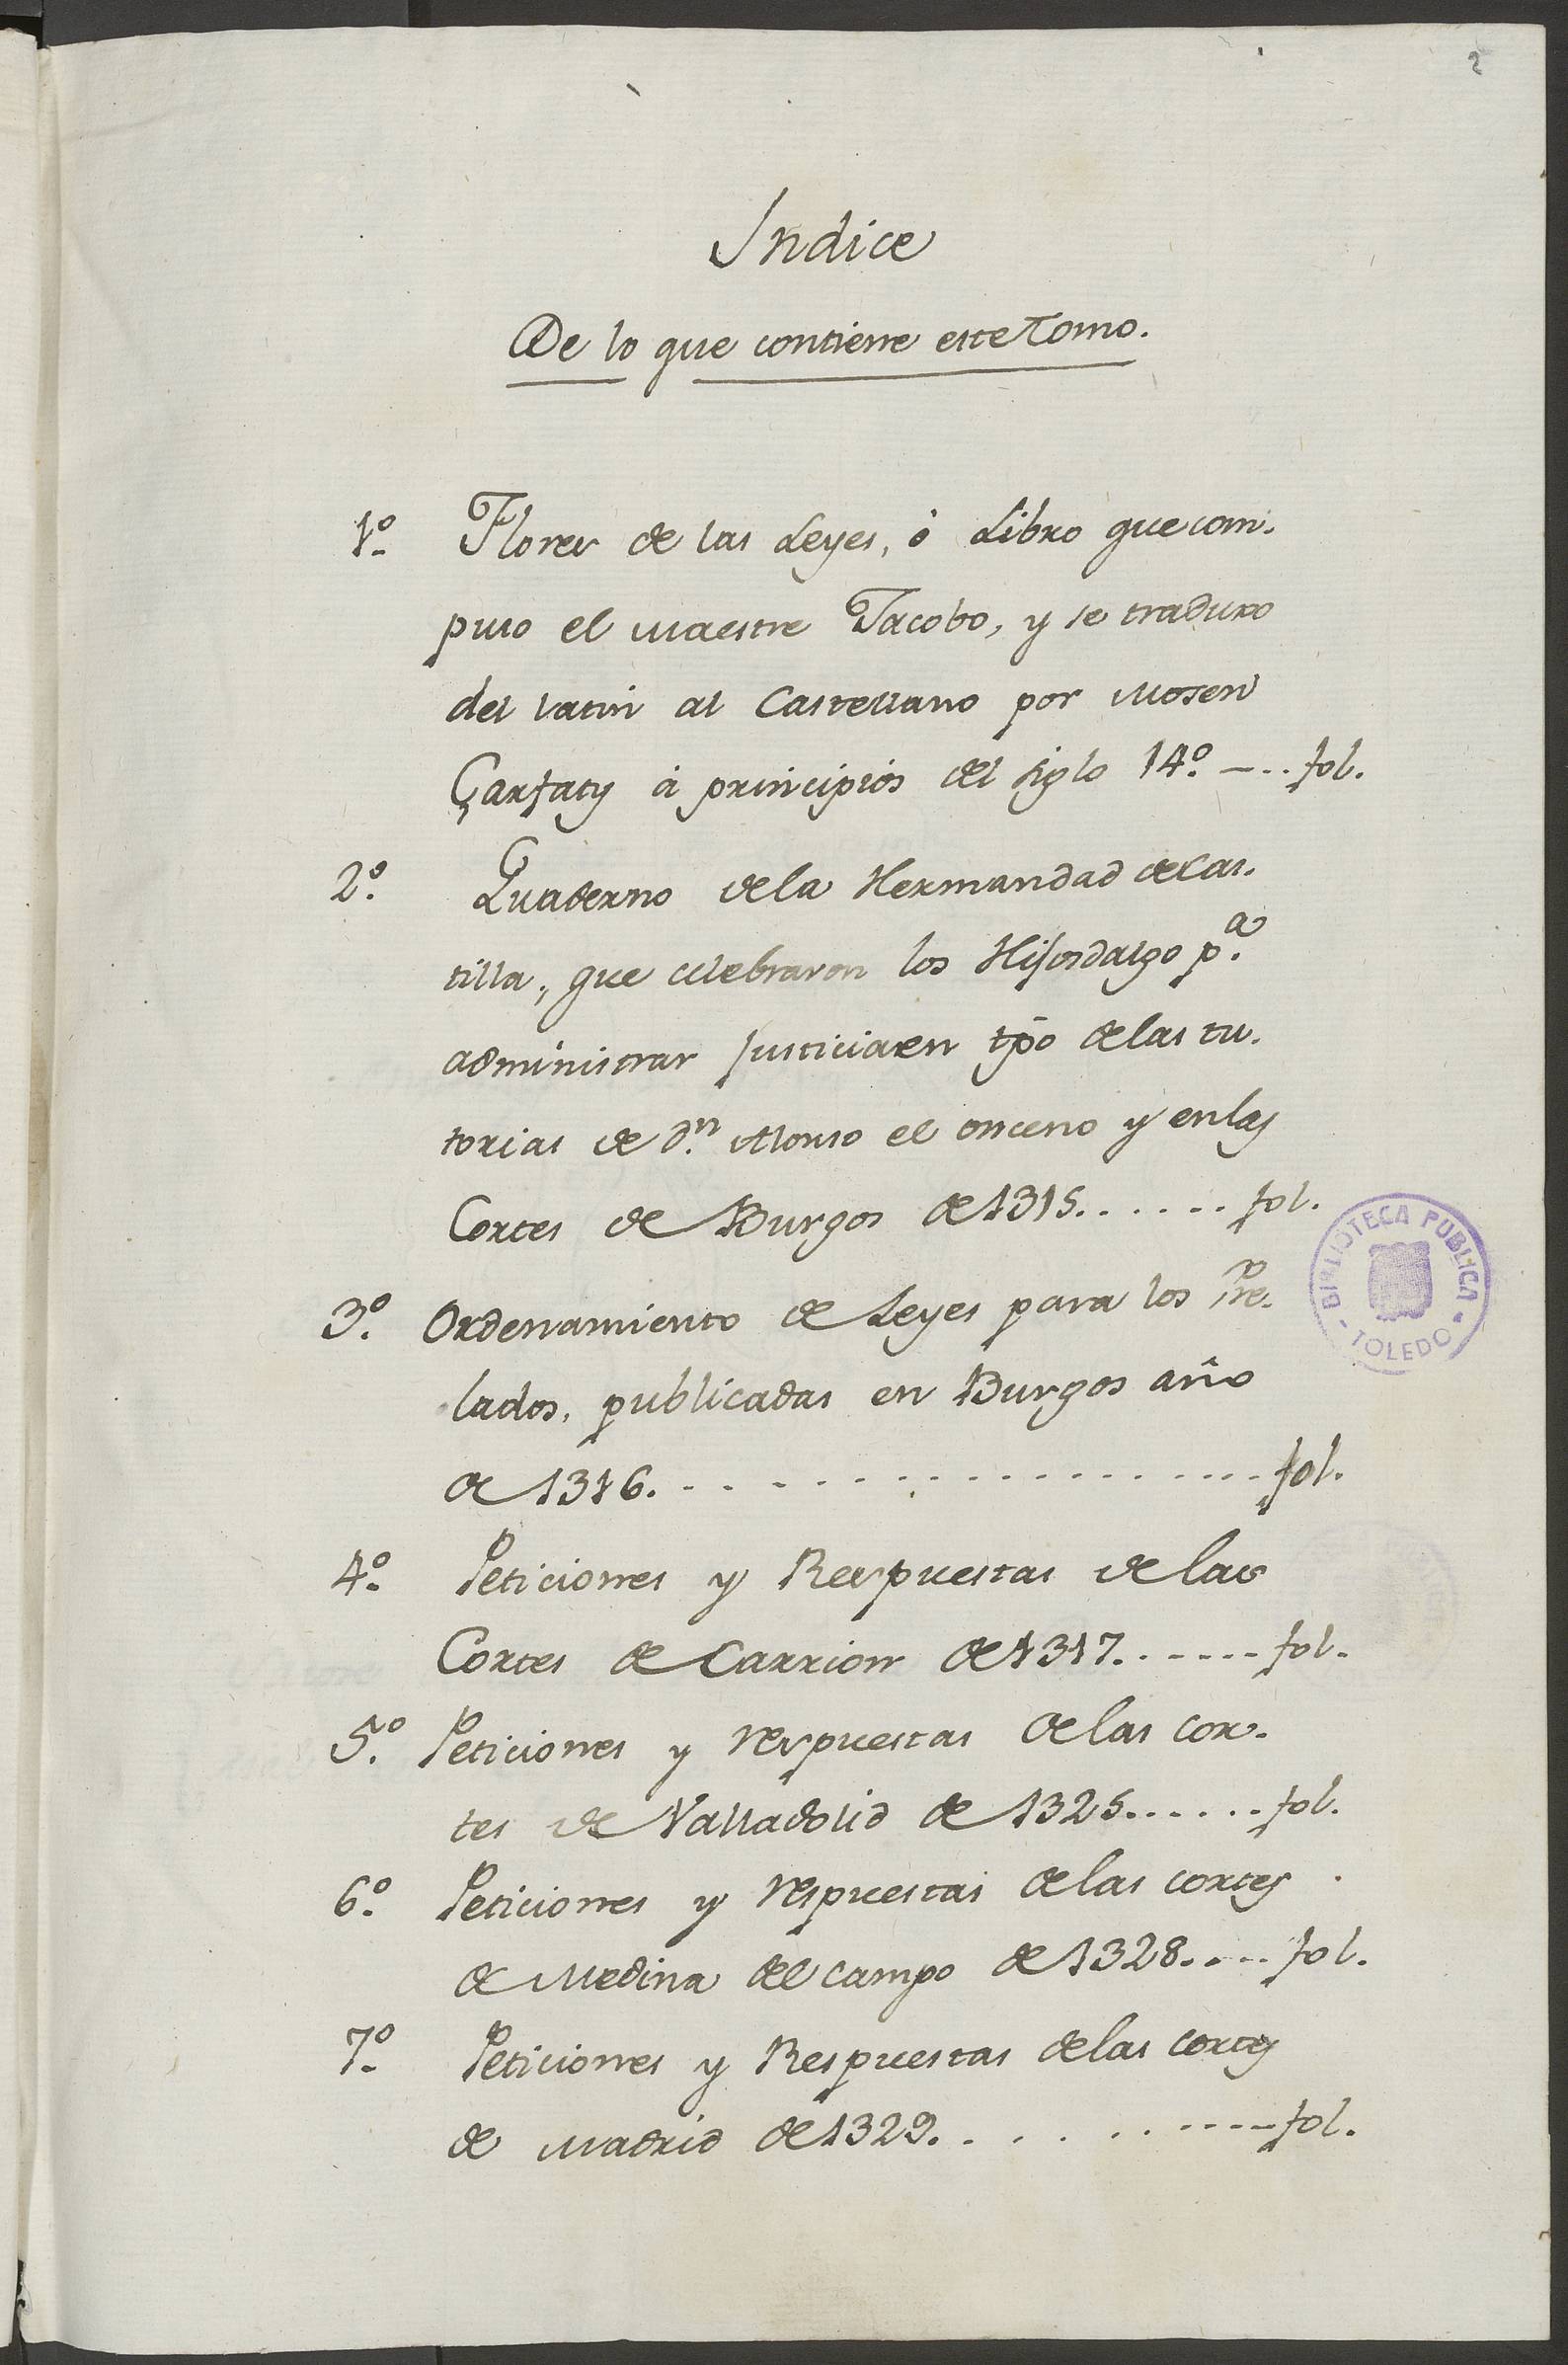 2
Indice
De lo que contiene este Tomo.
1º. Flores de las Leyes, ó Libro que com-
puso el Maestre Jacobo, y se traduxo
del latin al Castellano por Mosen
Çarfaty á principios del siglo 14º. --.. fol.
2º. Quaderno dela Hermandad de Cas-
tilla, que celebraron los Hijosdalgo pª.
administrar justicia en tpō delas tu-
torias de Dn. Alonso el onceno y en las
Cortes de Burgos de 1315....... fol.
3º. Ordenamiento de Leyes para los Pre-
lados, publicadas en Burgos año
de 1316. .................... fol.
4º. Peticiones y Respuestas de las
Cortes de Carrion de 1317....... fol.
5º. Peticiones y respuestas de las cor-
tes de Valladolid de 1325....... fol.
6º. Peticiones y respuestas de las cortes
de Medina del campo de 1328..... fol.
7º. Peticiones y Respuestas de las cortes
de Madrid de 1329. .......... fol.
BIBLIOTECA PUBLICA
- TOLEDO -